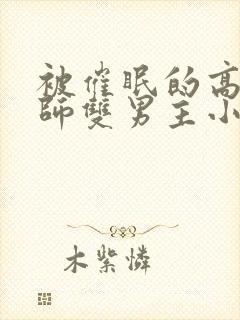 被催眠的高
師雙男主小
木紫憐